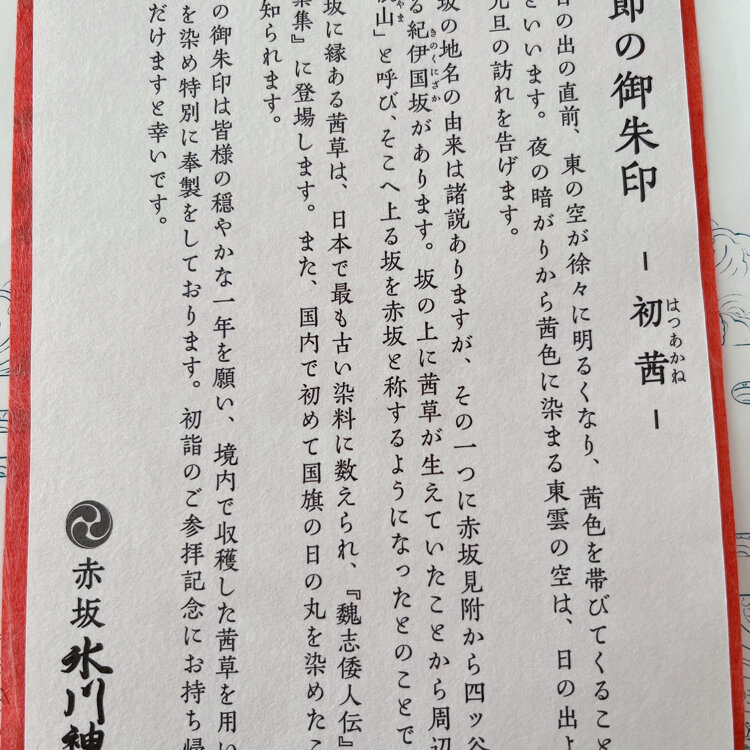 節の御朱印 ー初茜ー
はつあかね
日の出の直前、東の空が徐々に明るくなり、茜色を帯びてくること
といいます。夜の暗がりから茜色に染まる東雲の空は、日の出よ
元旦の訪れを告げます。
坂の地名の由来は諸説ありますが、その一つに赤坂見附から四ッ谷
る紀伊国坂があります。坂の上に茜草が生えていたことから周辺
きのくにざか
山」と呼び、そこへ上る坂を赤坂と称するようになったとのことで
やま
坂に縁ある茜草は、日本で最も古い染料に数えられ、『魏志倭人伝』
集』に登場します。また、国内で初めて国旗の日の丸を染めたこ
知られます。
の御朱印は皆様の穏やかな一年を願い、境内で収穫した茜草を用い
を染め特別に奉製をしております。初詣のご参拝記念にお持ち帰
だけますと幸いです。
赤坂氷川神